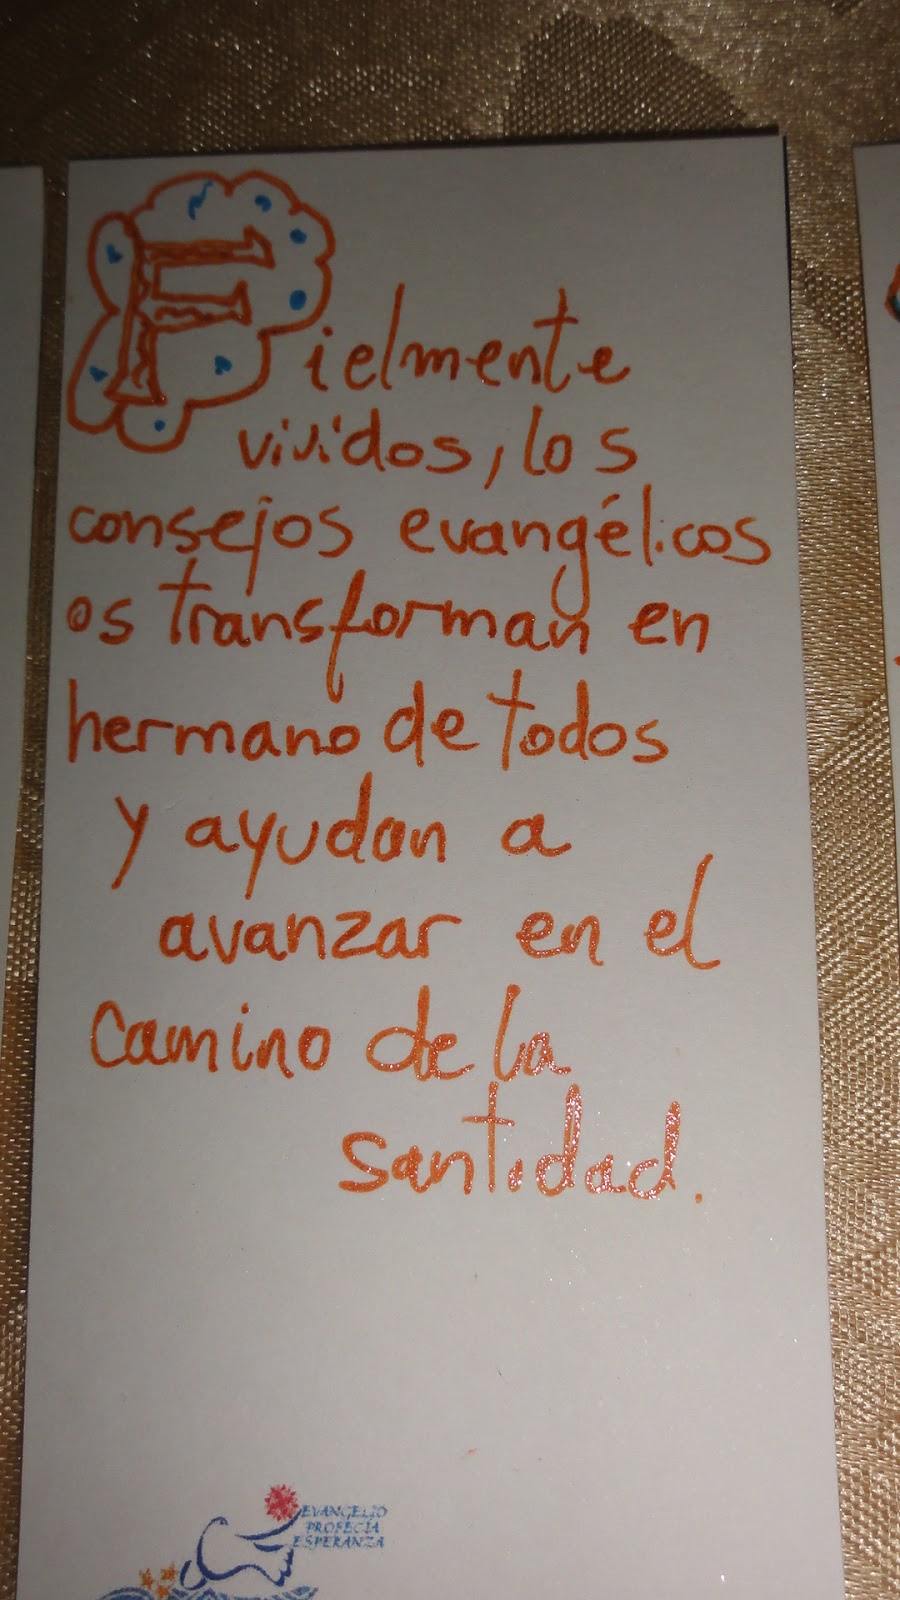 Fielmente
vividos, los
consejos evangélicos
os transforman en
hermano de todos
y ayudan a
avanzar en el
camino de la
santidad.
EVANGELIO
PROFECÍA
ESPERANZA